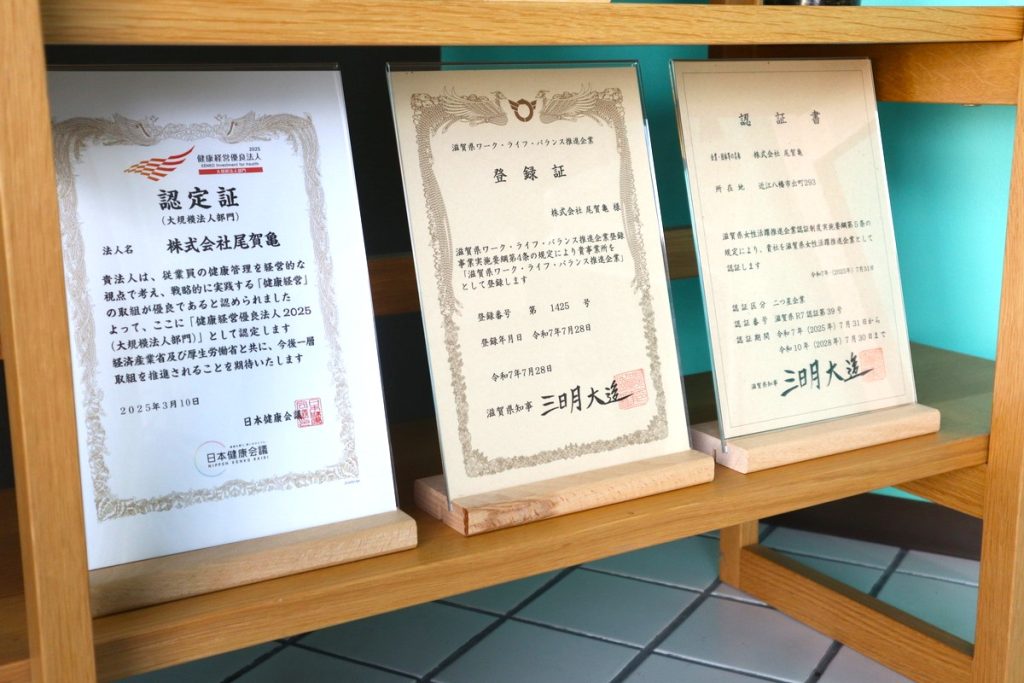 2025
健康経営優良法人
KENKO Investment for Health
大規模法人部門
認定証
(大規模法人部門)
法人名 株式会社尾賀亀
貴法人は、従業員の健康管理を経営的な
視点で考え、戦略的に実践する「健康経営」
の取組が優良であると認められました
よって、ここに「健康経営優良法人2025
(大規模法人部門)」として認定します
経済産業省及び厚生労働省と共に、今後一層
取組を推進されることを期待いたします
2025年3月10日
日本健康会議
日本健康会議
NIPPON KENKO KAIGI
滋賀県ワーク・ライフ・バランス推進企業
登録証
株式会社 尾賀亀 様
滋賀県ワーク・ライフ・バランス推進企業登録
事業実施要綱第4条の規定により貴事業所を
「滋賀県ワーク・ライフ・バランス推進企業」
として登録します
登録番号 第 1425 号
登録年月日 令和7年7月28日
令和7年7月28日
滋賀県知事 三日月大造
認証書
株式会社 尾賀亀
所在地 近江八幡市出町293
滋賀県女性活躍推進企業認証制度実施要綱第5条の
規定により、貴社を滋賀県女性活躍推進企業として
認証します
令和7年(2025年)7月31日
認証区分 二つ星企業
認証番号 滋賀県R7認証第39号
認証期間 令和7年(2025年)7月31日から
令和10年(2028年)7月30日まで
滋賀県知事 三日月大造